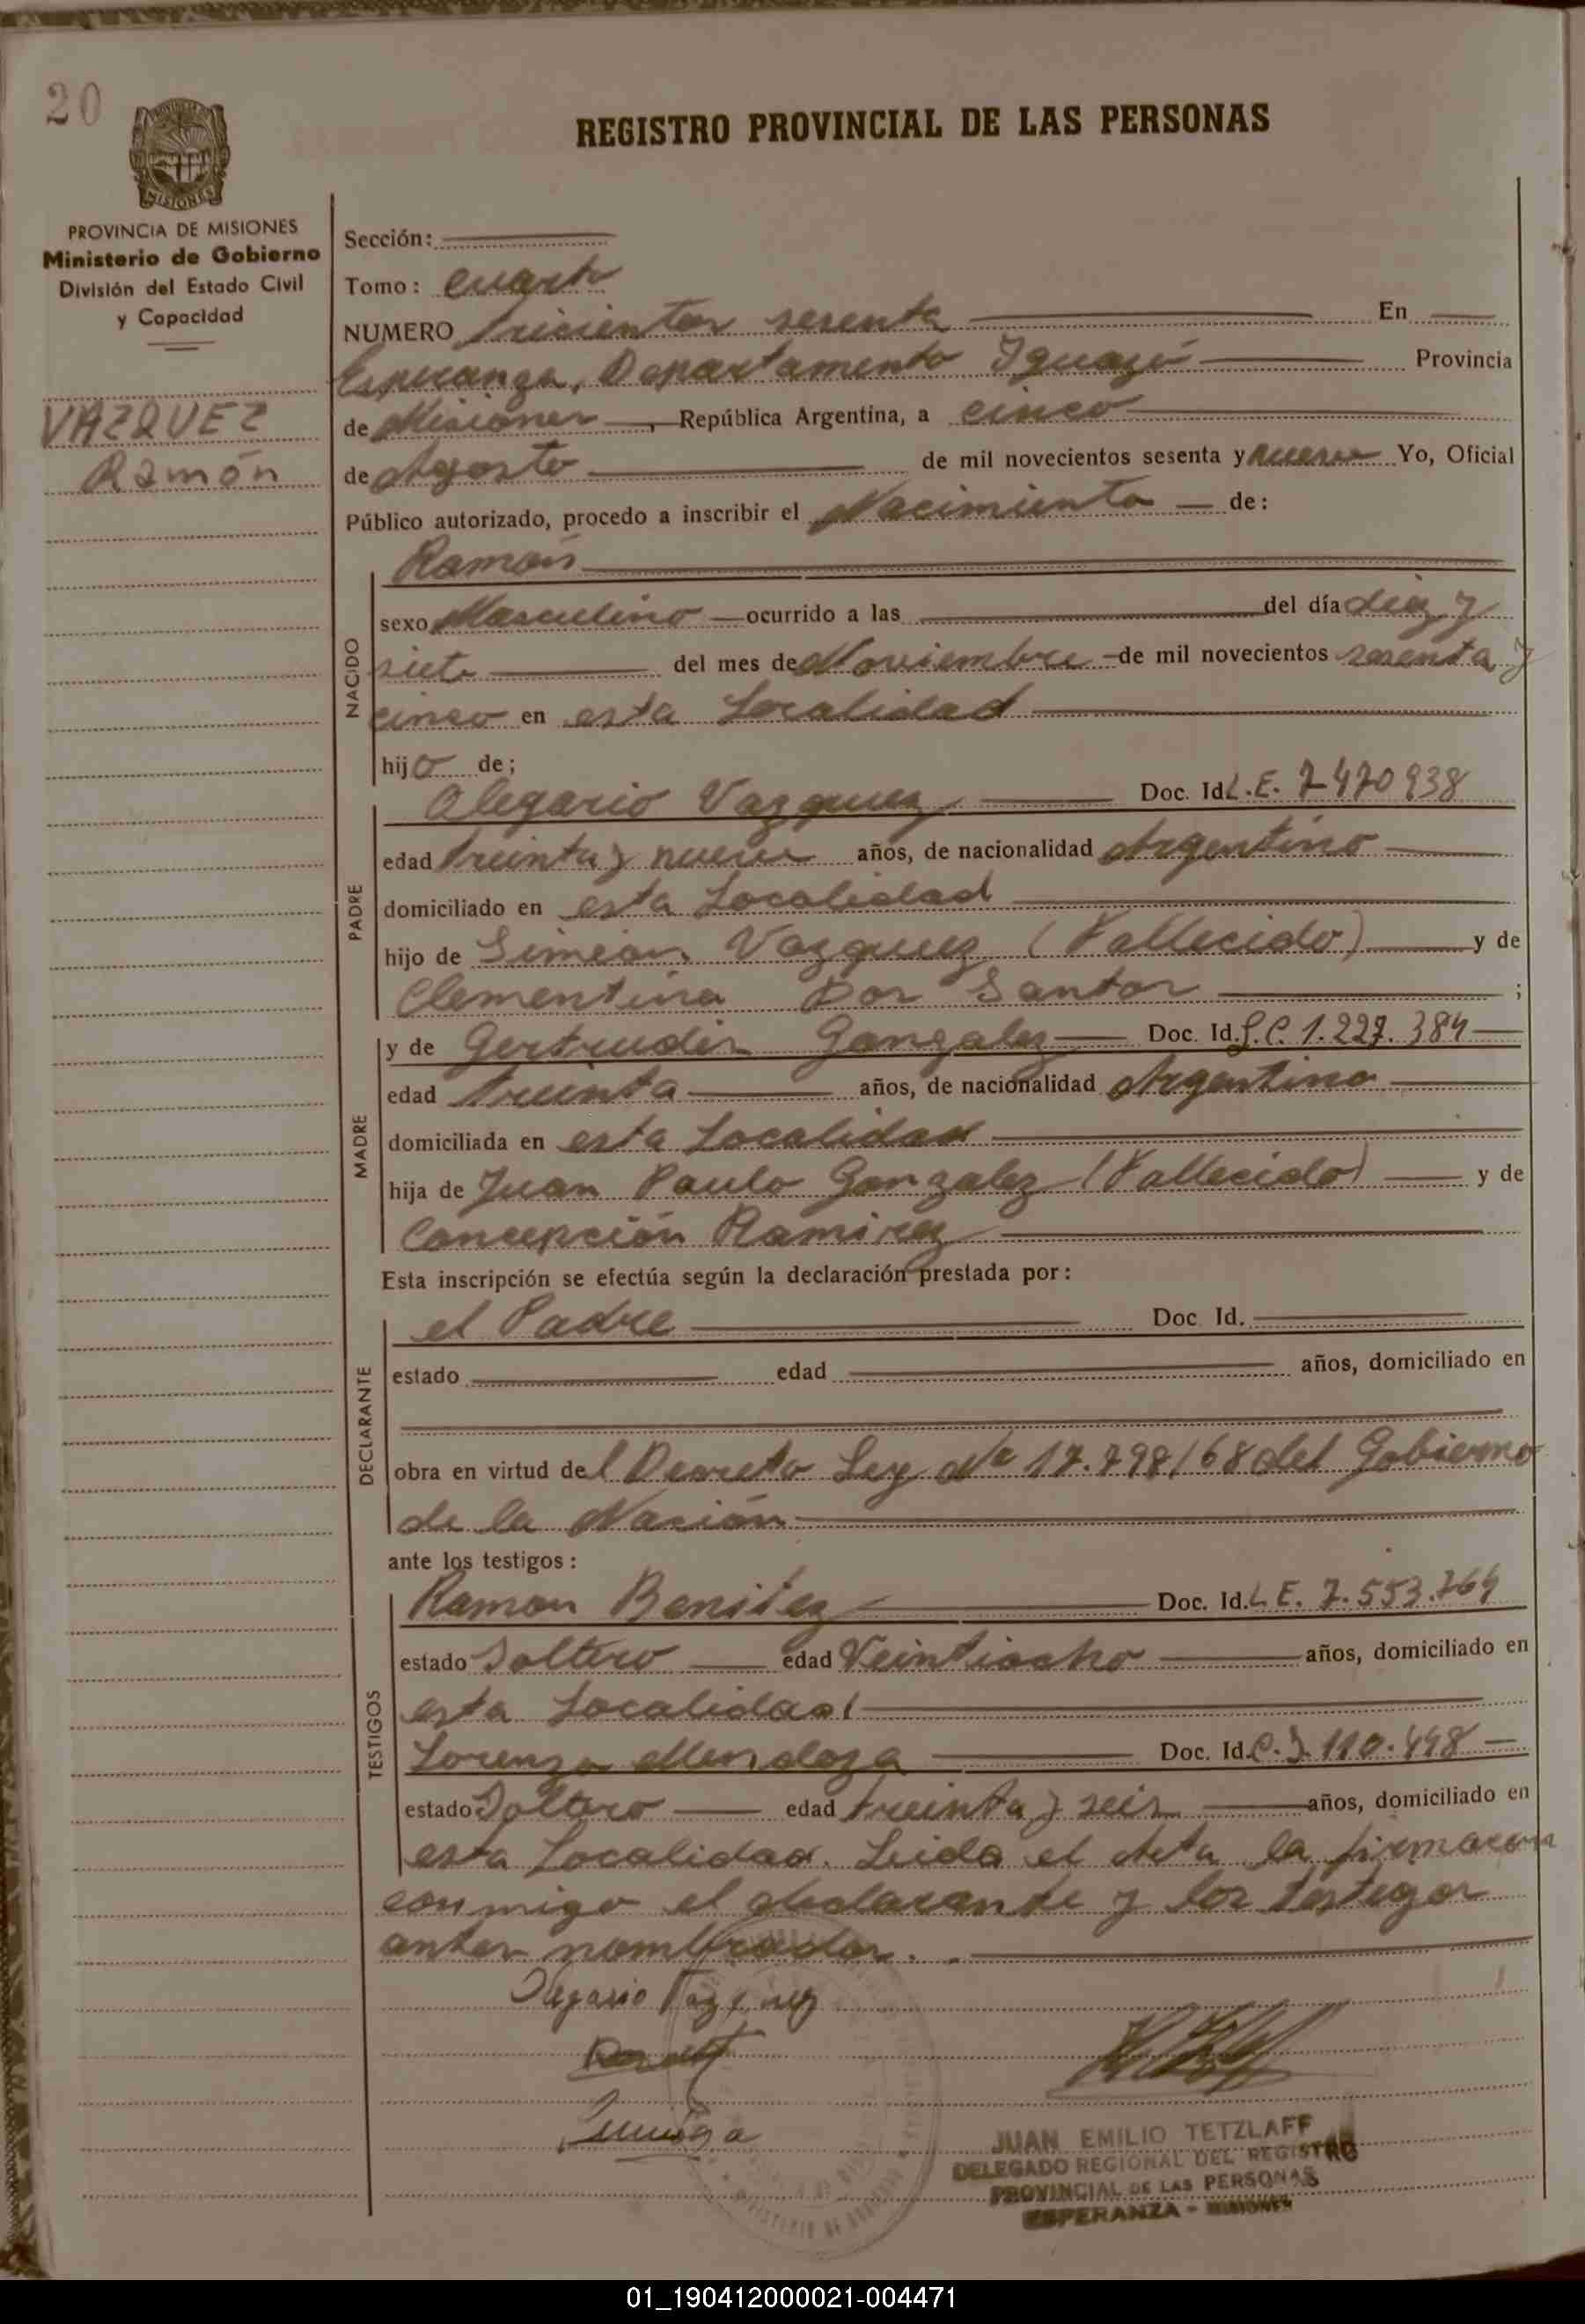 20
REGISTRO PROVINCIAL DE LAS PERSONAS
MISIONES
PROVINCIA DE MISIONES
Ministerio de Gobierno
División del Estado Civil
y Capacidad
VAZQUEZ
Ramón
Sección:
Tomo: Cuarto
NUMERO Tricientos sesenta En
Esperanza, Departamento Iguazú Provincia
de Misiones, República Argentina, a cinco
de Agosto de mil novecientos sesenta y nueve Yo, Oficial
Público autorizado, procedo a inscribir el Nacimiento de:
NACIDO
Ramón
sexo Masculino ocurrido a las del día diez y
siete del mes de Noviembre de mil novecientos sesenta y
cinco en esta Localidad
hijo de;
PADRE
Olegario Vazquez Doc. Id. L.E. 7470938
edad treinta y nueve años, de nacionalidad Argentino
domiciliado en esta Localidad
hijo de Simeon Vazquez (Fallecido) y de
Clementina Dos Santos ;
MADRE
y de Gertrudis Gonzalez Doc. Id. L.C. 1.227.384
edad treinta años, de nacionalidad Argentina
domiciliada en esta Localidad
hija de Juan Paulo Gonzalez (Fallecido) y de
Concepción Ramirez
Esta inscripción se efectúa según la declaración prestada por:
DECLARANTE
el Padre Doc Id.
estado edad años, domiciliado en
obra en virtud del Decreto Ley Nº 17.798/68 del Gobierno
de la Nación
ante los testigos:
TESTIGOS
Ramon Benitez Doc. Id. L E. 7.553.764
estado Soltero edad Veintiocho años, domiciliado en
esta Localidad
Lorenzo Mendoza Doc. Id. C.I. 110.498
estado Soltero edad treinta y seis años, domiciliado en
esta Localidad. Leida el Acta la firmaron
conmigo el declarante y los testigos
antes nombrados.
Olegario Vazquez
JUAN EMILIO TETZLAFF
DELEGADO REGIONAL DEL REGISTRO
PROVINCIAL DE LAS PERSONAS
ESPERANZA - MISIONES
01_190412000021-004471